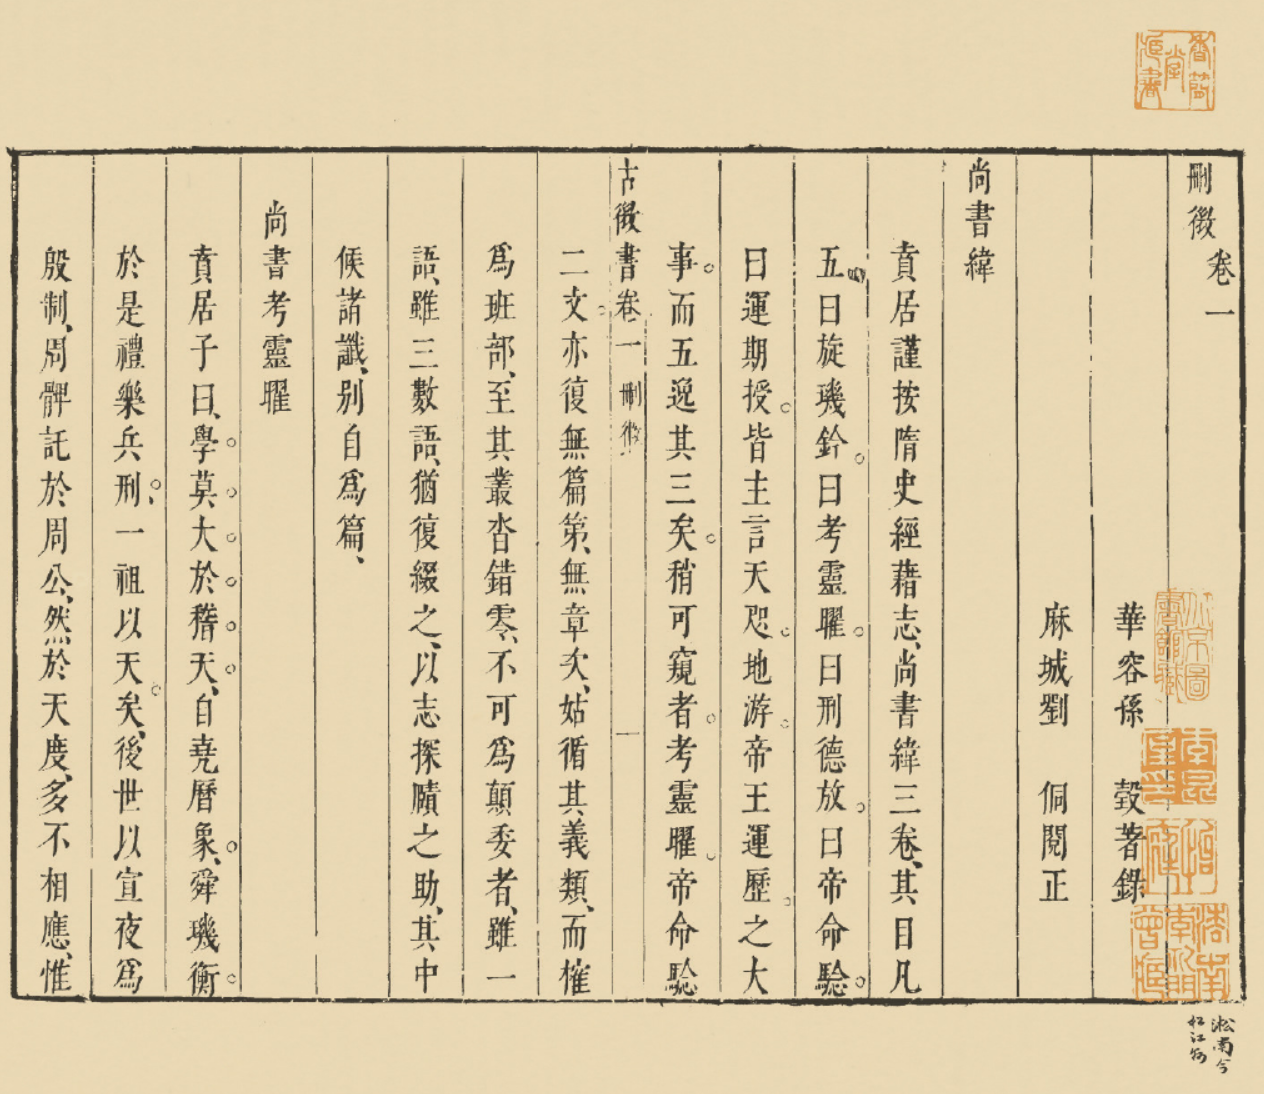 刪微卷一
華容孫　瑴著錄
麻城劉　侗閱正
尚書緯
賁居謹按隋史經藉志、尚書緯三卷、其目凡
五曰旋璣鈐曰考靈曜曰刑德放曰帝命驗
曰運期授皆主言天咫地游帝王運歷之大
事而五逸其三矣稍可窺者考靈曜帝命驗
古微書卷一 刪微 一
二文亦復無篇第、無章次、姑循其義類、而榷
爲班部、至其叢沓錯零、不可爲顛委者、雖一
語、雖三數語、猶復綴之、以志探賾之助、其中
候諸讖、別自爲篇、
尚書考靈曜
賁居子曰、學莫大於稽天、自堯曆象、舜璣衡
於是禮樂兵刑、一祖以天矣、後世以宣夜爲
殷制、周髀託於周公、然於天度、多不相應、惟
淞南今
松江弼